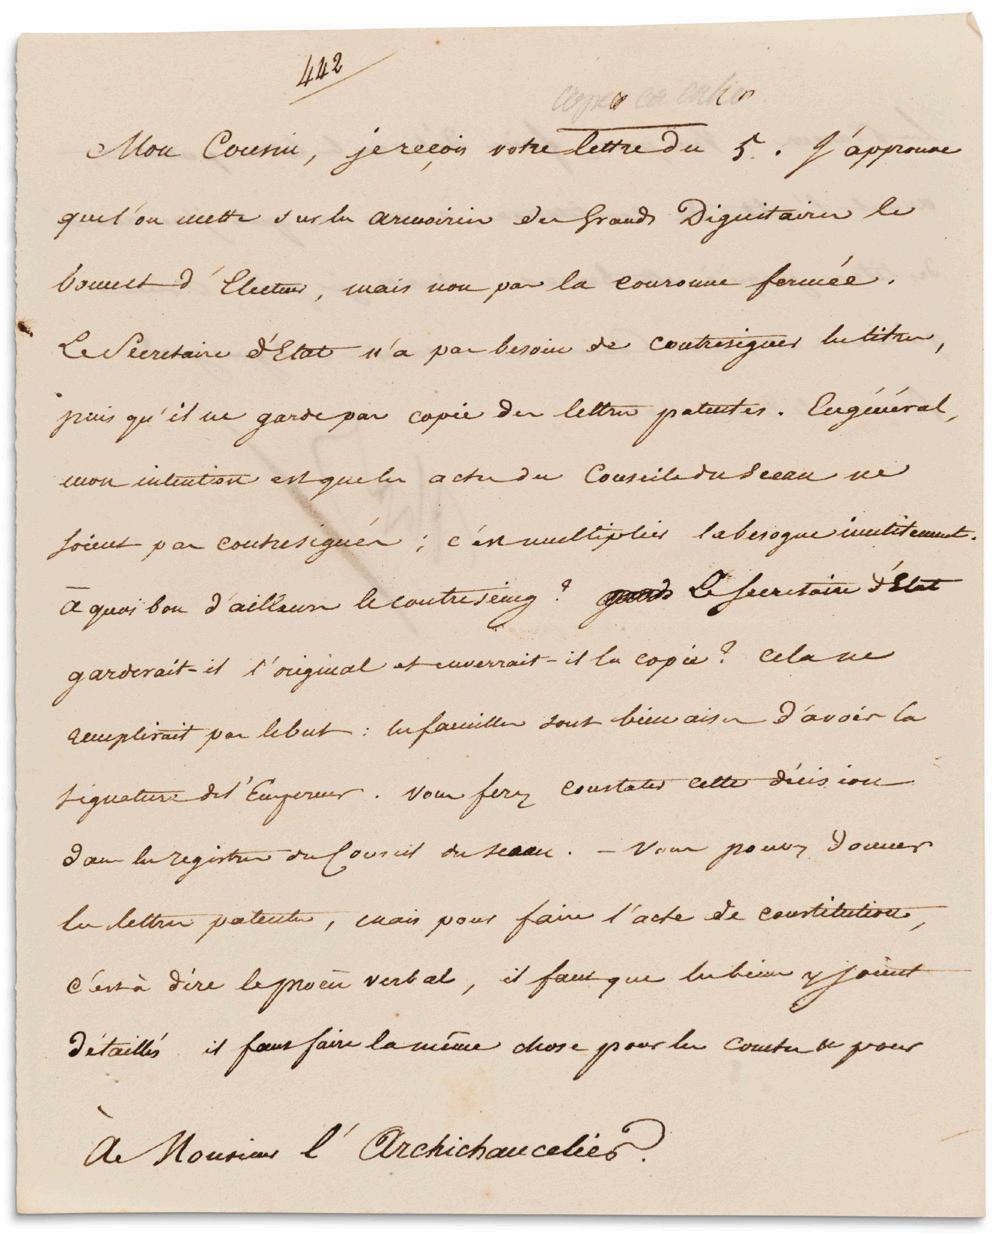 442
Mon Cousin, je reçois votre lettre du 5. J'approuve
que l'on mette sur les armoiries des Grands Dignitaires le
bonnet d'Electeur, mais non pas la couronne fermée.
Le Secretaire d'Etat n'a pas besoin de contresigner les titres,
puis qu'il ne garde pas copie des lettres patentes. En général,
mon intention est que les actes du Conseil du Sceau ne
soient pas contresignés ; c'est multiplier la besogne inutilement.
À quoi bon d'ailleurs le contreseing ? Le Secretaire d'Etat
garderait-il l'original et enverrait-il la copie ? Cela ne
remplirait pas le but : les familles sont bien aises d'avoir la
signature de l'Empereur. Vous ferez constater cette décision
dans les registres du Conseil du Sceau. – Vous pouvez donner
les lettres patentes, mais pour faire l'acte de constitution,
c'est à dire le procès verbal, il faut que les biens y soient
détaillés il faut faire la même chose pour les comtes et pour
À Monsieur l'Archichancelier